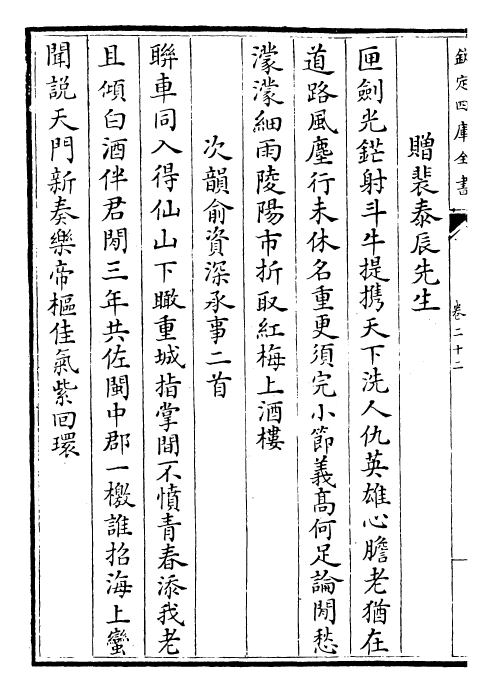 欽定四庫全書
卷二十二
贈裴泰辰先生
匣劍光鋩射斗牛提携天下洗人仇英雄心膽老猶在
道路風塵行未休名重更須完小節義高何足論閒愁
濛濛細雨陵陽市折取紅梅上酒樓
次韻俞資深承事二首
聨車同入得仙山下瞰重城指掌間不憤青春添我老
且傾白酒伴君閒三年共佐閩中郡一檄誰招海上蠻
聞說天門新奏樂帝樞佳氣紫回環